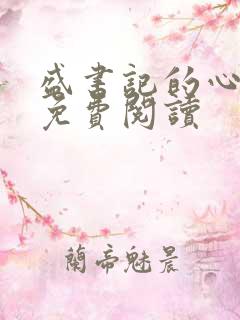 盛書記的心
免費閱讀
蘭帝魅晨